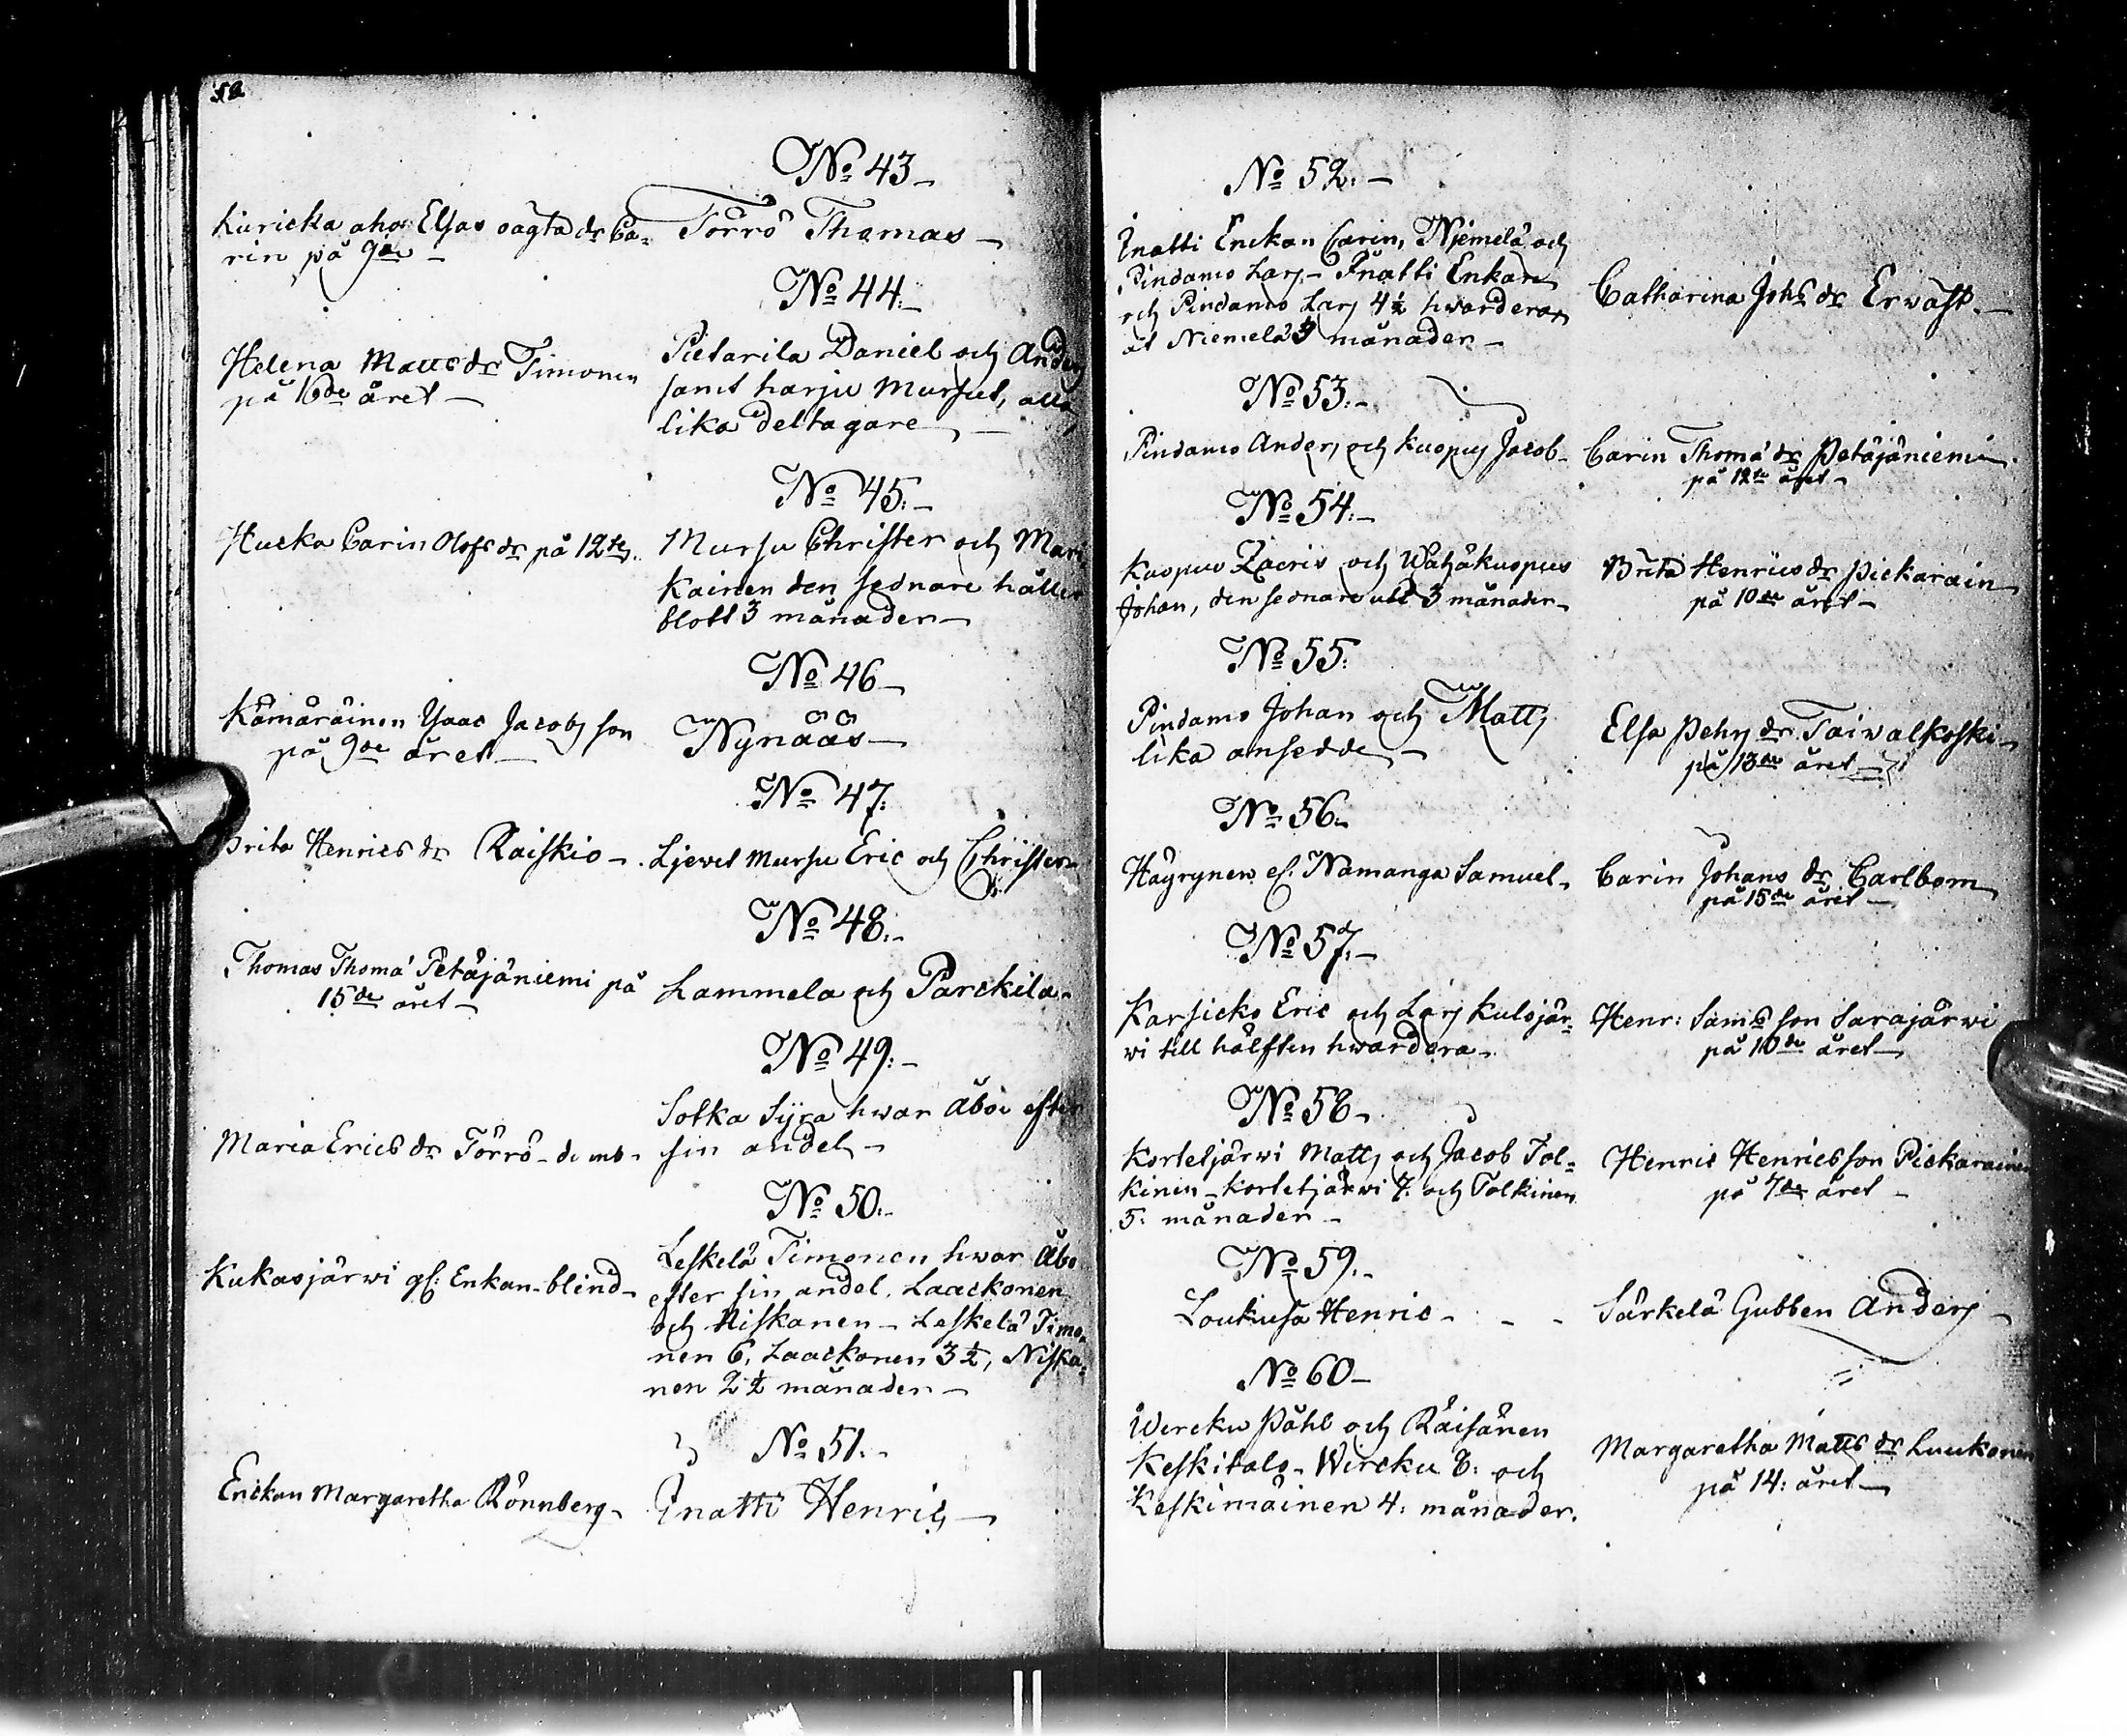 No 43
Kuricka aho Elsas oägta dr Ca-
rin på 9de
Törrö Thomas
No 44
Helena Matts dr Timonen
på 16de året
Pietarila Daniel och Anders
samt harju Mursut, alla
lika deltagare
No 45.
Hucka Carin Olofs dr på 12te
Mursu Christer och Mari
kainen den sednare håller
blott 3 månader
No 46
Kämäräinen Ysaac Jacobs son
på 9de året
Nynäås
No 47.
Brita Henrics dr Raiskio
Ljevet Mursu Eric och Christer
No 48.
Thomas Thomæ Petäjäniemi på
15de året
Lammela och Parckila
No 49.
Maria Erics dr Törrö
Sotka Syra hwar Åboe efter
sin andel
No 50.
Kukasjärwi gl. Enkan blind
Leskelä Timonen hwar Åbo
efter sin andel. Laackonen
och Niskanen - Leskelä Timo-
nen 6, Laackonen 3 ½, Niska-
nen 2 ½ månader
No 51.
Enckan Margaretha Rönnberg
Gnatti Henric
No 52.
Gnatti Enckan Carin, Njemelä och
Pindamo Lars - Gnatti Enkan
och Pindamo Lars 4 ½ hwardera
åt Niemelä 3 månader
Catharina Johs dr Erwast.
No 53.
Pindamo Anders och Kuopus Jacob
Carin Thomæ dr Petäjäniemi
på 12te året
No 54.
Kuopus Zacris och Wähäkuopus
Johan, den sednare utd 3 månader
Brita Henrics dr Pickarain
på 10de året
No 55.
Pindamo Johan och Matts
lika ansedde
Elsa Pehrs dr Taiwalkoski
på 13de året
No 56.
Häyrynen el. Namanga Samuel
Carin Johans dr Carlbom
på 15de året
No 57.
Karsicko Eric och Lars Kulojär-
wi till hälften hwardera
Henr: Sams son Sarajärwi
på 10de året
No 58
Kortetjärwi Matts och Jacob Tol-
kinen - Kortetjärwi 7. och Tolkinen
5. månader
Henric Henrics son Pickarainen
på 7de året
No 59.
Loukusa Henric
Särkelä Gubben Anders
No 60
Wircku Påhl och Räisänen
Keskitalo - Wircku 8. och
Keskimäinen 4. månader.
Margaretha Matts dr Luukonen
på 14: året